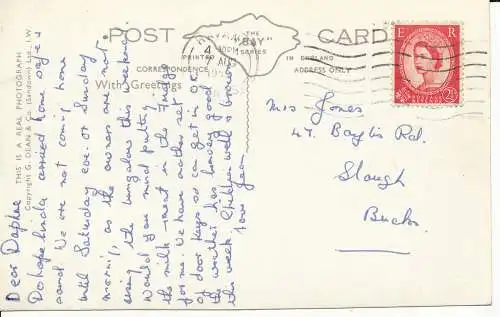 POST CARD
THE
"BAY"
SERIES
PRINTED
IN ENGLAND
CORRESPONDENCE
ADDRESS ONLY
With Greetings
THIS IS A REAL PHOTOGRAPH
Copyright G. DEAN & Co. (Sandown) Ltd., I.W.
E R
POSTAGE REVENUE
2½D
4 AUG
Dear Daphne
Do hope Linda arrived home safe &
sound. We are not coming home
until Saturday eve. or Sunday
morning, as the owners are not
using the bungalow this weekend.
Would you mind putting
the milk & meat in the Fridge
for me. We have another set
of door keys so can get in O.K.
the weather has been very good
this week. Children well & brown
love Jean
Mrs Jones
47. Baylis Rd.
Slough
Bucks.